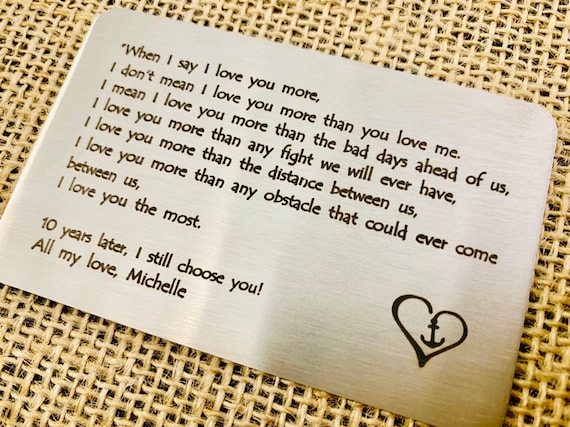 "When I say I love you more,
I don't mean I love you more than you love me.
I mean I love you more than the bad days ahead of us,
I love you more than any fight we will ever have,
I love you more than the distance between us,
I love you more than any obstacle that could ever come
between us,
I love you the most.
10 years later, I still choose you!
All my love, Michelle